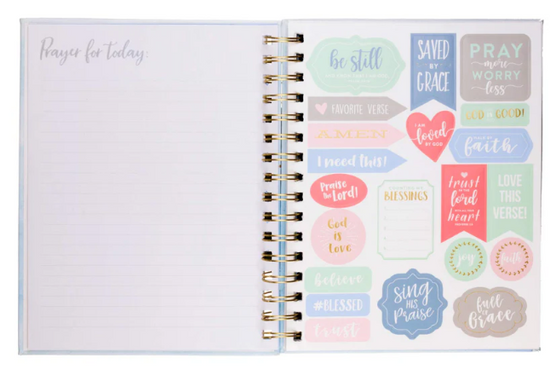 Prayer for today:
be still
SAVED
BY
GRACE
PRAY
more
WORRY
less
FAVORITE VERSE
GOD IS GOOD!
AMEN
I AM
loved
BY GOD
faith
I need this!
Praise
the Lord!
trust
in the
lord
with all your
heart
LOVE
THIS
VERSE!
BLESSINGS
God
is
Love
joy
faith
believe
#BLESSED
trust
sing
HIS
Praise
full
of
Grace